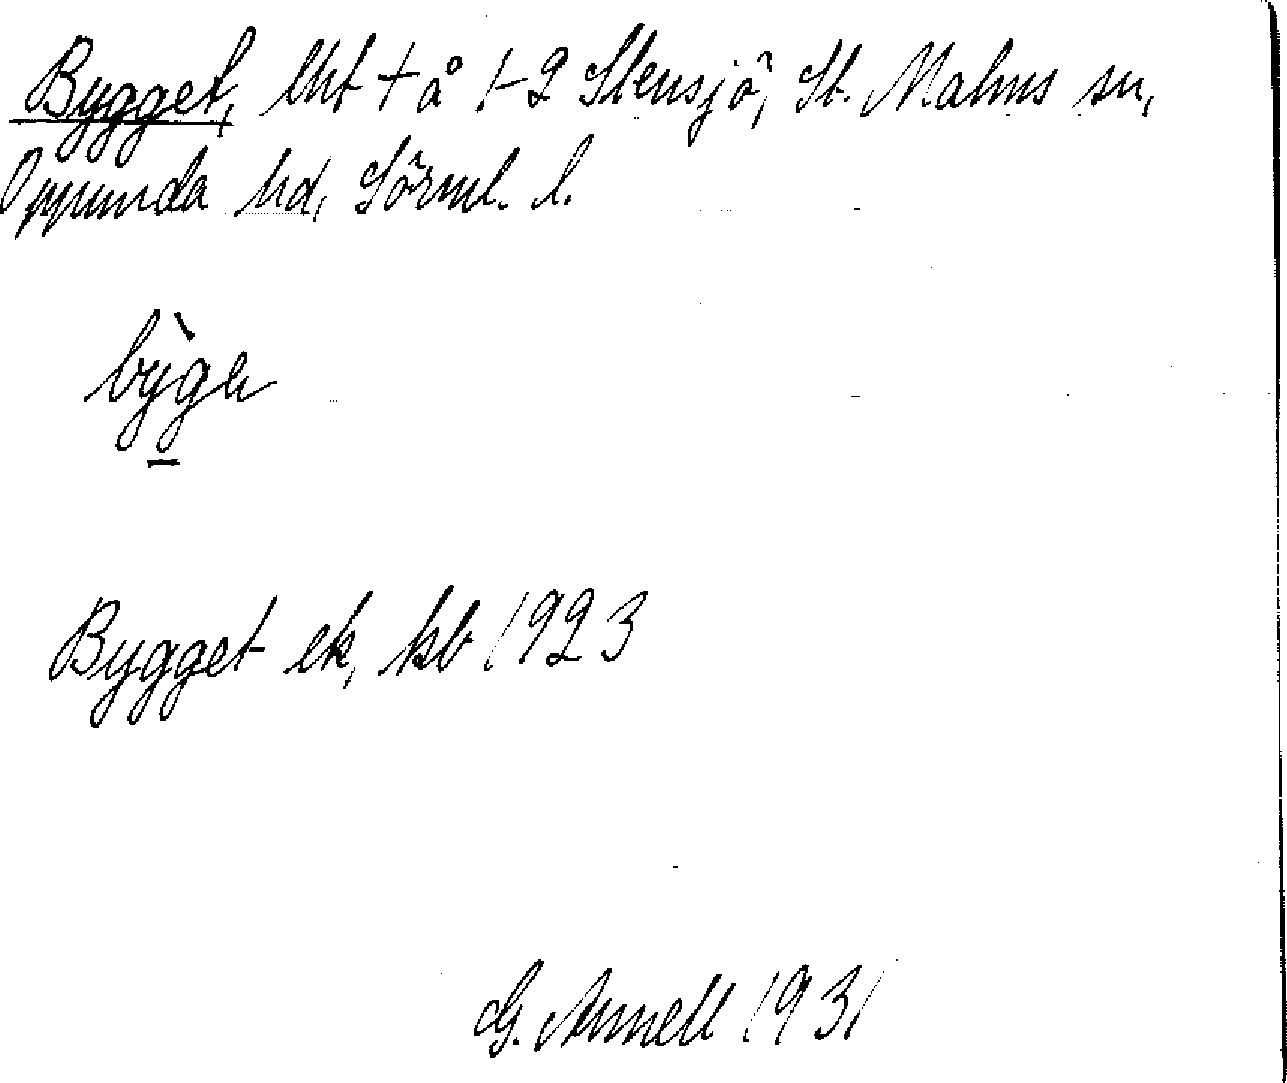 Bygget, lht + å 1-2 Stensjö, St. Malms sn,
Oppunda hd, Sörml. l.
bỳgə
Bygget ek, kb 1923
G. Arnell 1931